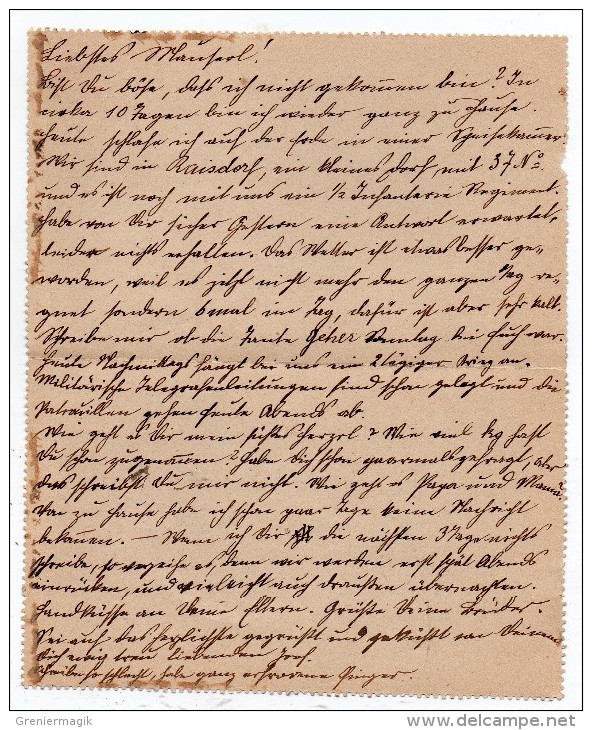 Liebstes Mauserl!
Bist Du böse, daß ich nicht gekommen bin? In
cirka 10 Tagen bin ich wieder ganz zu Hause.
Heute schlafe ich auf der Erde in einer Speisekammer.
Wir sind in Raisdorf, ein kleines Dorf mit 37 No
und es ist noch mit uns ein 1/2 Infanterie Regiment.
Habe von Dir sicher Gestern eine Antwort erwartet,
leider nichts erhalten. Das Wetter ist etwas besser ge-
worden, weil es jetzt nicht mehr den ganzen Tag re-
gnet sondern 6 mal im Tag, dafür ist aber sehr kalt.
Schreibe mir ob die Tante Sonntag bei Euch war.
Heute Nachmittags fängt bei uns ein 2 tägiger Krieg an.
Militärische Telegrafenleitungen sind schon gelegt und die
Patrouillen gehen heute Abends ab.
Wie geht es Dir mein süßes Herzerl? Wie viel kg hast
Du schon zugenommen? Habe Dich schon paarmal gefragt, aber
das schreibst Du mir nicht. Wie geht es Papa und Mama?
Von zu Hause habe ich schon paar Tage keine Nachricht
bekommen. — Wenn ich Dir die nächsten 3 Tage nichts
schreibe, so verzeihe es, denn wir werden erst spät Abends
einrücken, und vielleicht auch draußen übernachten.
Handküsse an Deine Eltern. Grüße Deine Brüder.
Sei auch das herzlichste gegrüßt und geküßt von Deinem
Dich ewig treu liebenden Josef.
Schreibe so schlecht, habe ganz erfrorene Finger.
Greniermagik
www.delcampe.net